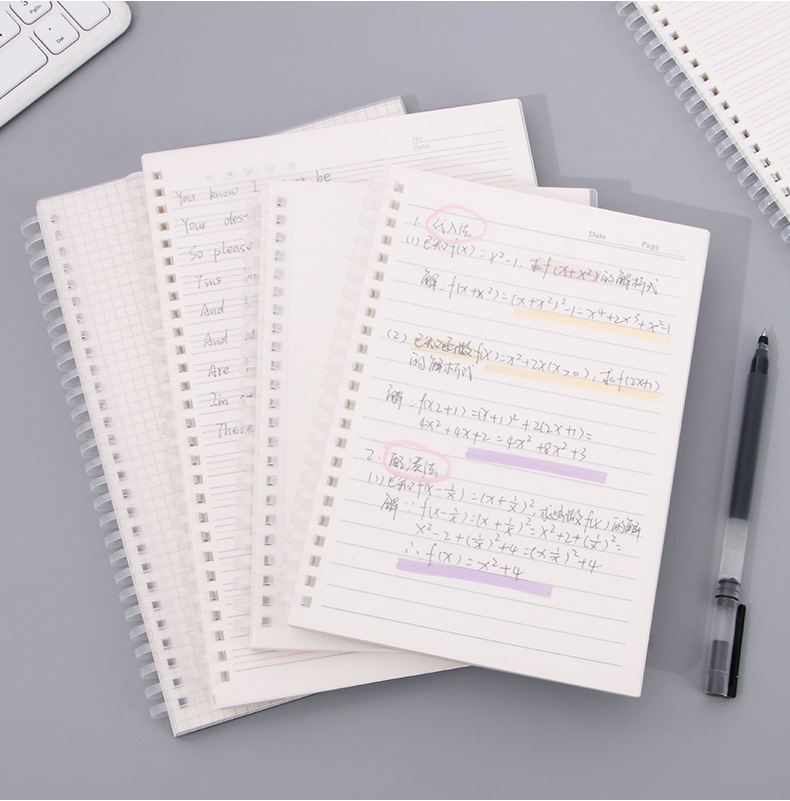 PgDn
Del
No.
Date
You know I be
Your des-
So please
Tins
And
And
Are
I'm
There
Date Page
1. 代入法
(1) 已知f(x)=x²-1. 求f(x+x²)的解析式
解: f(x+x²)=(x+x²)²-1=x⁴+2x³+x²-1
(2) 已知函数f(x)=x²+2x(x>0), 求f(2x+1)
的解析式
解: f(x2+1)=(x+1)²+2(2x+1)=
4x²+4x+2=4x²+8x²+3
2. 配凑法
(1) 已知f(x-1/x)=(x+1/x)², 求函数f(x)的解
解: ∵f(x-1/x)=(x+1/x)²=x²+2+(1/x)²=
x²-2+(1/x)²+4=(x-1/x)²+4
∴f(x)=x²+4